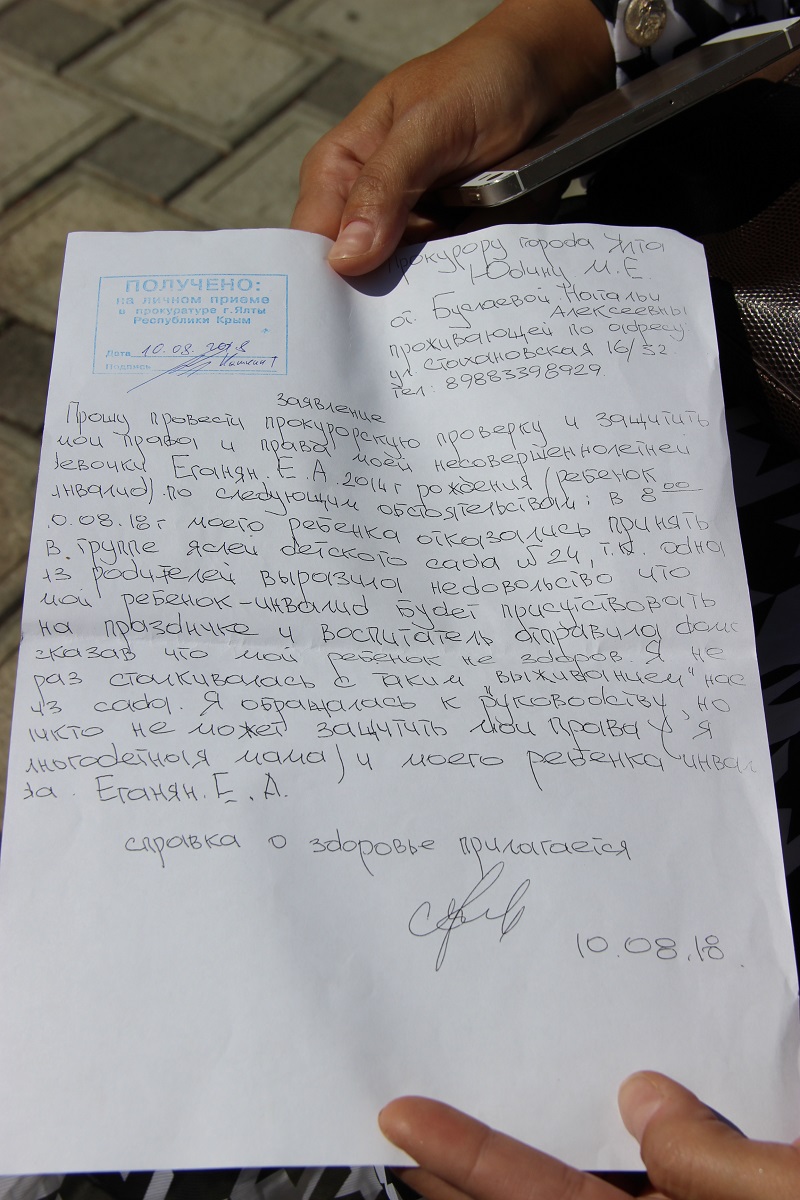 ПОЛУЧЕНО:
на личном приеме
в прокуратуре г.Ялты
Республики Крым
Дата 10.08.2018
Подпись
прокурору города Ялта
Юдину М.Е.
от. Буслаевой Натальи
Алексеевны
проживающей по адресу
ул Стахановская 16/32
тел: 89883398929.
заявление
Прошу провести прокурорскую проверку и защитить
мои права и права моей несовершеннолетней
девочки Еганян. Е.А. 2014г рождения (ребенок
инвалид) по следующим обстоятельствам: в 8 00
10.08.18г моего ребенка отказались принять
в группе яслей детского сада №24, т.к. одна
из родителей выразила недовольство что
мой ребенок-инвалид будет присутствовать
на празднике и воспитатель отправила домо
сказав что мой ребенок не здоров. Я не
раз сталкивалась с таким "выживанием" нас
из сада. Я обращалась к руководству, но
никто не может защитить мои права (я
многодетная мама) и моего ребенка инвал
да. Еганян. Е.А.
справка о здоровье прилагается
10.08.18.